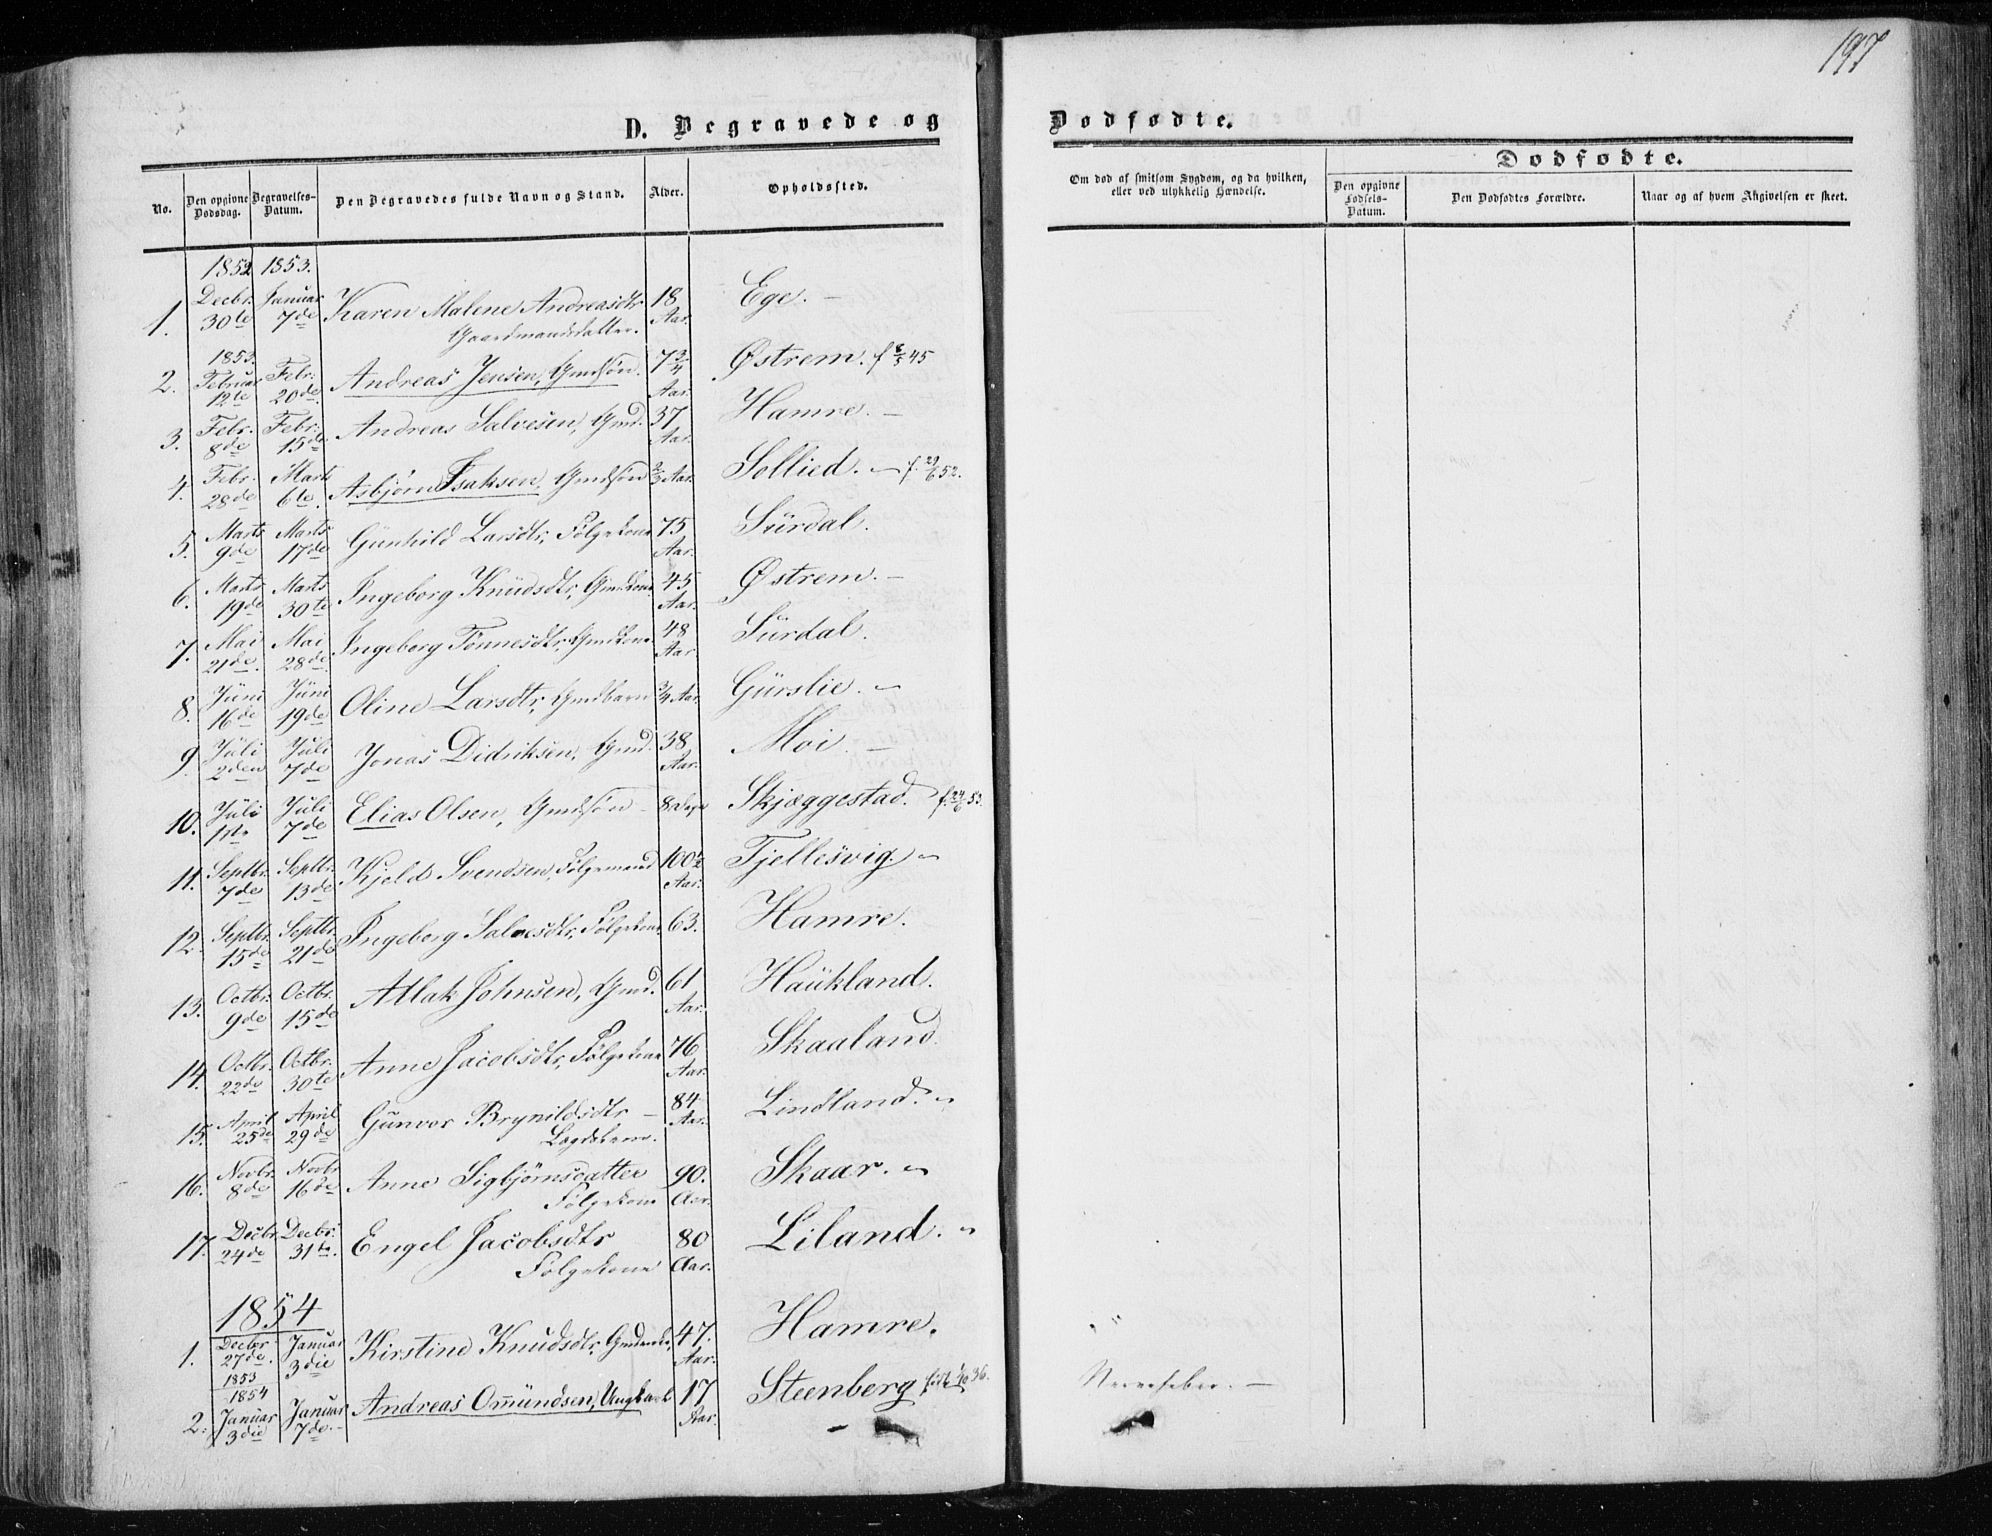 197
D. Begravede og Dødfødte.
No. Den opgivne Dødsdag. Begravelses-Datum. Den Begravedes fulde Navn og Stand. Alder. Opholdssted. Om død af smitsom Sygdom, og da hvilken, eller ved ulykkelig Hændelse.
Dødfødte.
Den opgivne Fødsels-Datum. Den Dødfødtes Forældre. Naar og af hvem Angivelsen er skeet.
1852 1853.
1. Decbr. 30te Januar 7de Karen Malene Andreasdtr. Gaardmandsdatter. 18 Aar. Ege. –
1853.
2. Februar 12te Febr. 20de. Andreas Jensen, Gmdsøn. 7 3/4 Aar. Østrem. f 8/5 45
3. Febr. 8de Febr. 15de Andreas Salvesen, Gmd. 37 Aar. Hamre. –
4. Febr. 28de Marts 6te. Asbjørn Isaksen, Gmdsøn 2/3 Aar. Sollied. – f. 29/6 52.
5. Marts 9de Marts 17de Gunhild Larsdtr, Følgekone 75 Aar. Surdal.
6. Marts 19de Marts 30te Ingeborg Knudsdtr, Gmdkone 45 Aar. Østrem. –
7. Mai 21de. Mai 28de Ingeborg Tønnesdtr, Gmdkone 48 Aar Surdal.
8. Juni 16de Juni 19de Oline Larsdtr, Gmdbarn 3/4 Aar. Gurslie. –
9. Juli 2den Juli 7de Jonas Didriksen, Gmd. 38 Aar. Moi. –
10. Juli 1ste Juli 7de Elias Olsen, Gmdsøn – 8 Dage Skjæggestad. f. 24/6 53.
11. Septbr. 7de Septbr. 13de Kjeld Svendsen, Følgemand 100 1/2 Aar. Tjellesvig. –
12. Septbr. 15de Septbr. 21de Ingeborg Salvesdtr, Følgekone 63. Hamre.
13. Octbr. 9de Octbr. 15de Atlak Johnsen, Gmd. 61 Aar. Haukland.
14. Octbr. 22de Octbr. 30te Anne Jacobsdtr, Følgekone 76 Aar. Skaaland.
15. April 25de April 29de Gunvor Brynildsdtr – Lægdslem. 84 Aar. Lindland. –
16. Novbr. 8de Novbr 16de Anne Sigbjørnsdatter Følgekone 90. Aar. Skaar. –
17. Decbr. 24de Decbr. 31te. Engel Jacobsdtr Følgekone 80 Aar. Liland. –
1854
1. Decbr 27de. 1853 Januar 3die Kirstine Knudsdtr, 47. Aar. Hamre. " "
1854
2. Januar 3die Januar 7de. – Andreas Omundsen, Ungkarl 17 Aar. Steenberg født 36. Nervefeber. –